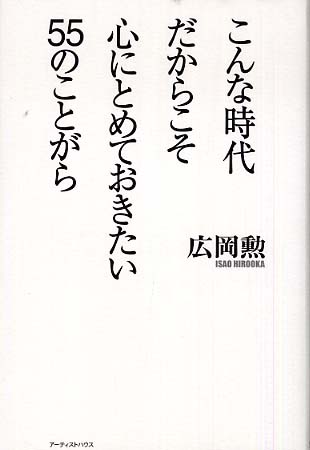 こんな時代
だからこそ
心にとめておきたい
55のことがら
広岡勲
ISAO HIROOKA
アーティストハウス